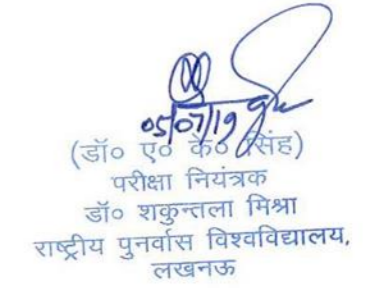 05/07/19
(डॉ० ए० के० सिंह)
परीक्षा नियंत्रक
डॉ० शकुन्तला मिश्रा
राष्ट्रीय पुनर्वास विश्वविद्यालय,
लखनऊ